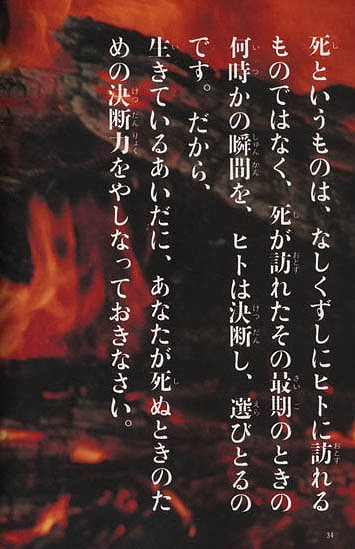 死というものは、なしくずしにヒトに訪れる
ものではなく、死が訪れたその最期のときの
何時かの瞬間を、ヒトは決断し、選びとるの
です。だから、
生きているあいだに、あなたが死ぬときのた
めの決断力をやしなっておきなさい。
34